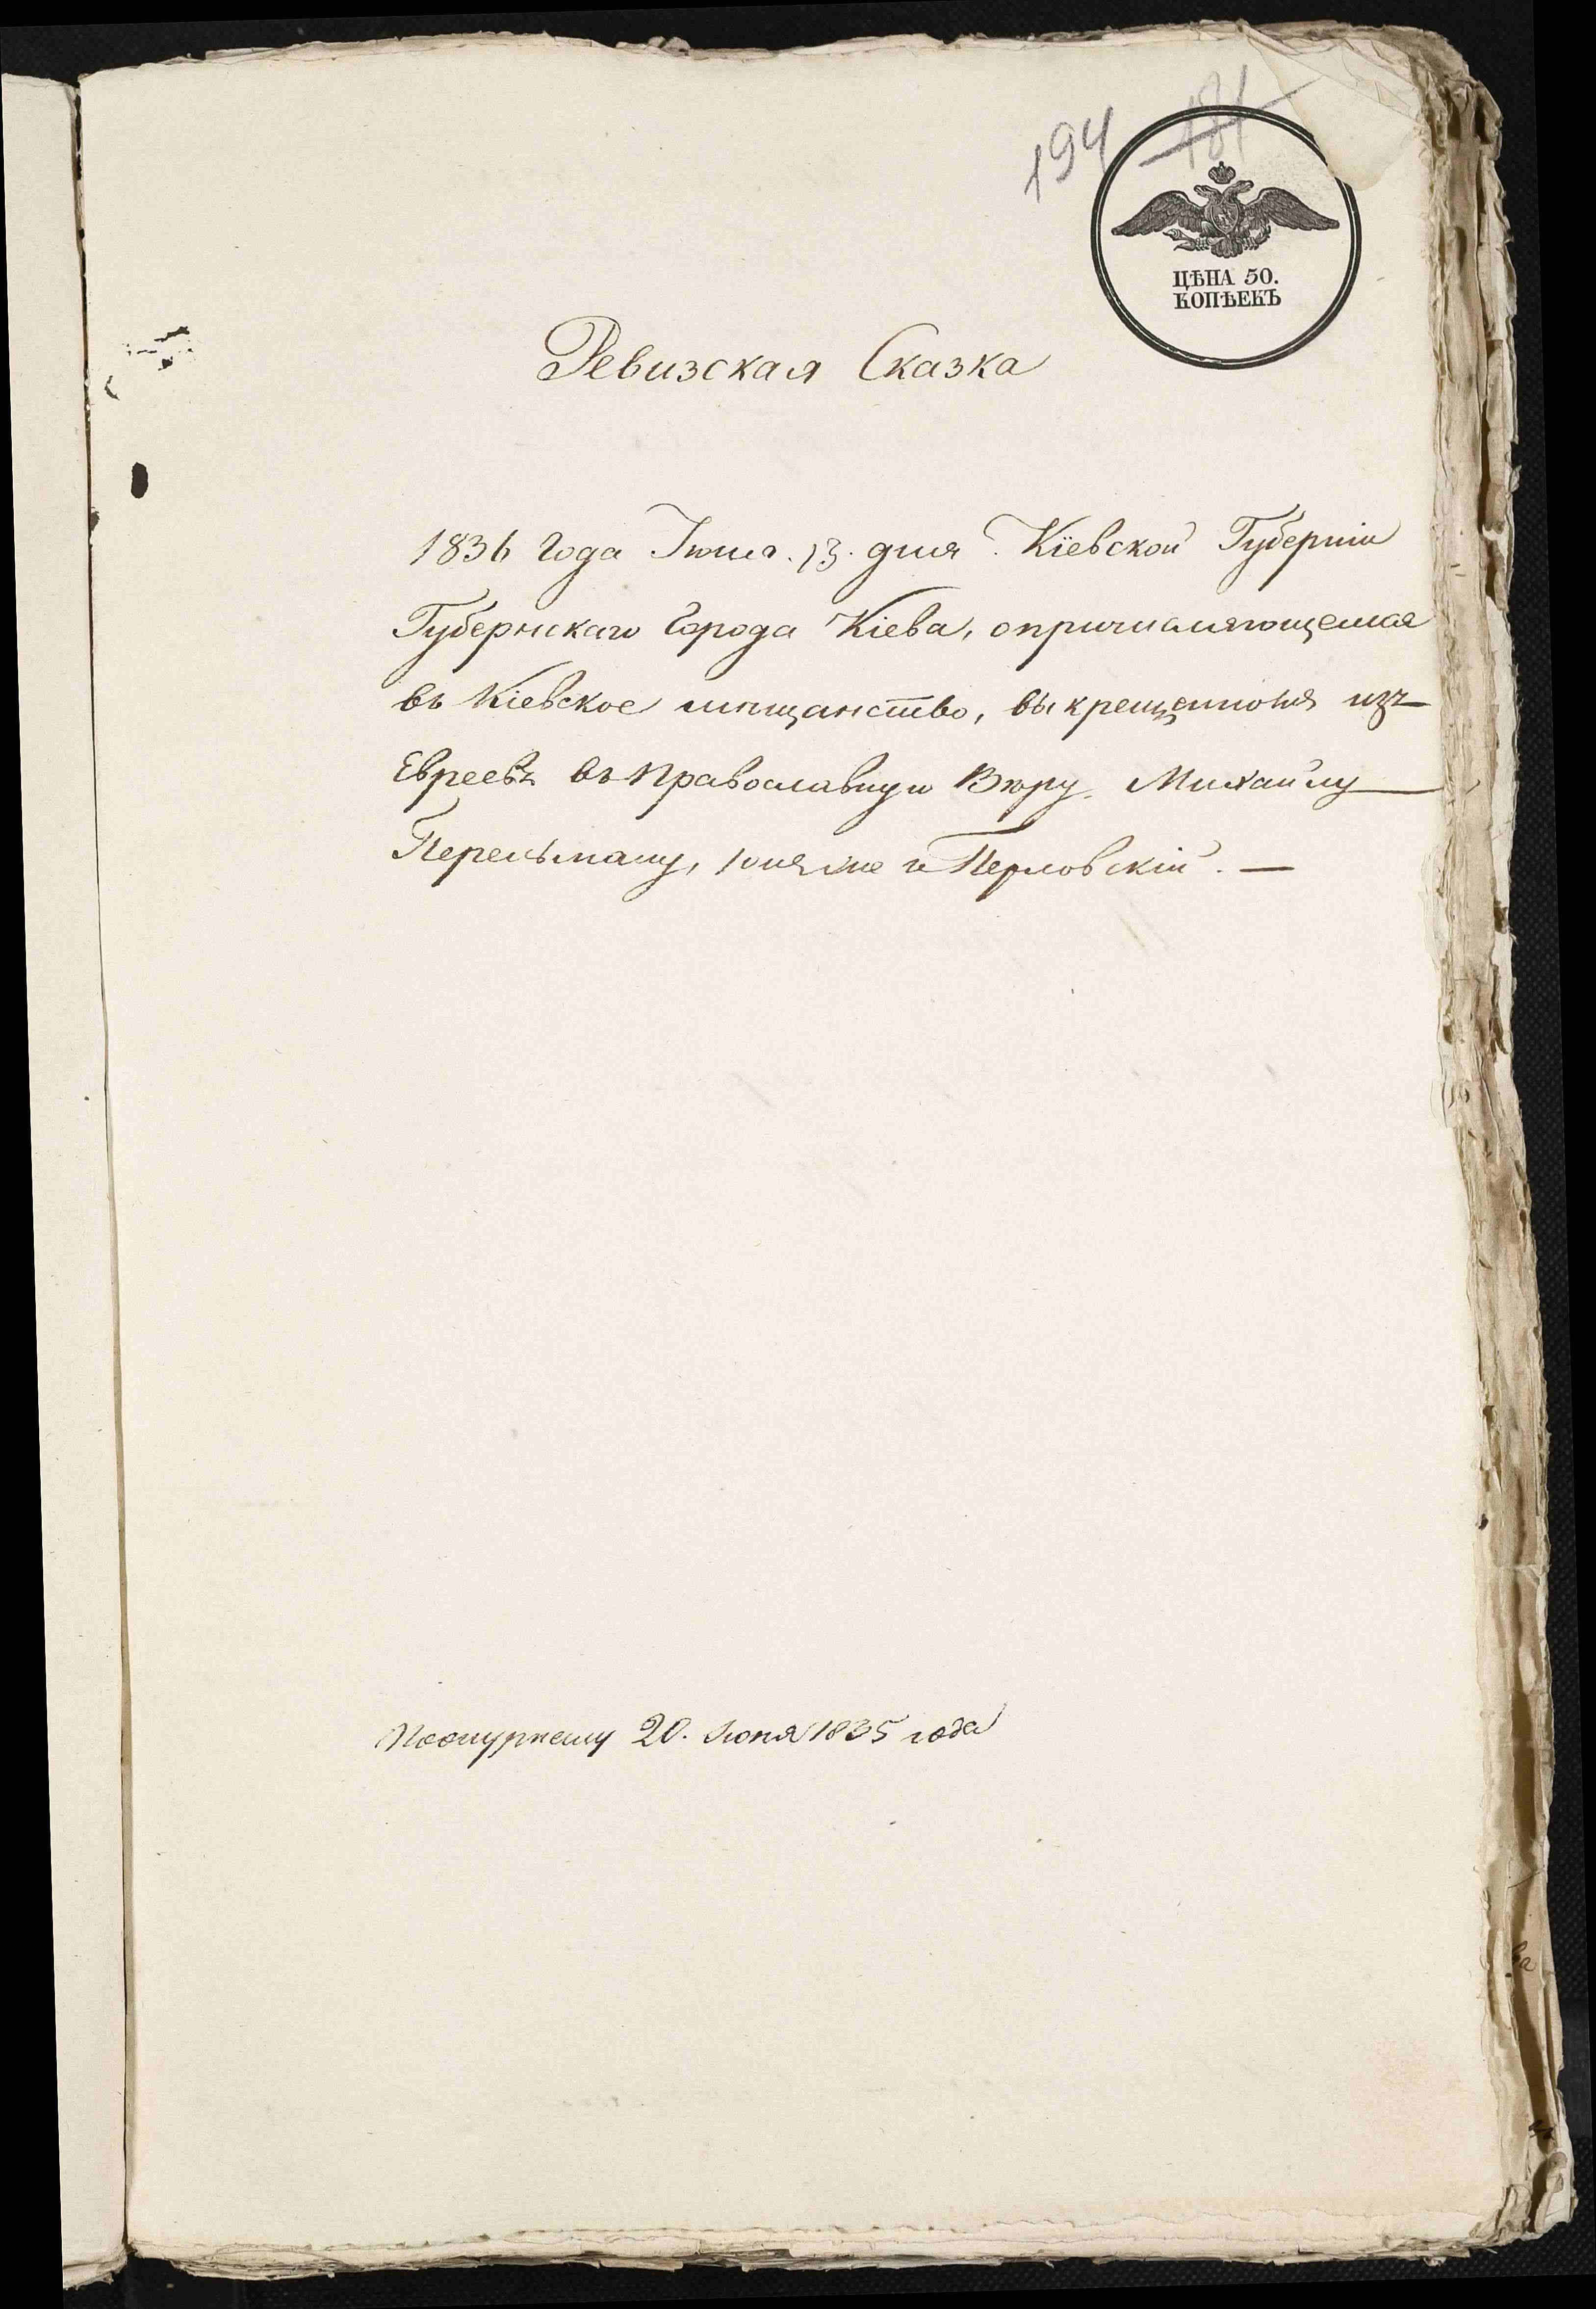 194 181
ЦѢНА 50.
КОПѢЕКЪ
Ревизская Сказка
1836 Года Іюня. 13. дня. Кіевской Губерніи
Губернскаго Города Кіева, о причисляющемся
въ Кіевское мѣщанство, выкрещенномъ изъ
Евреевъ въ Православную Вѣру. Михайлу
Перельману, онъ же и Перловскій. —
20. Іюня 1835 года